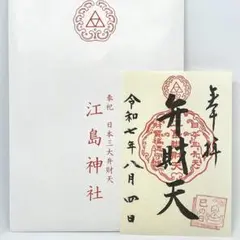 奉祝 日本三大弁財天
江島神社
奉拝
弁財天
令和七年八月四日